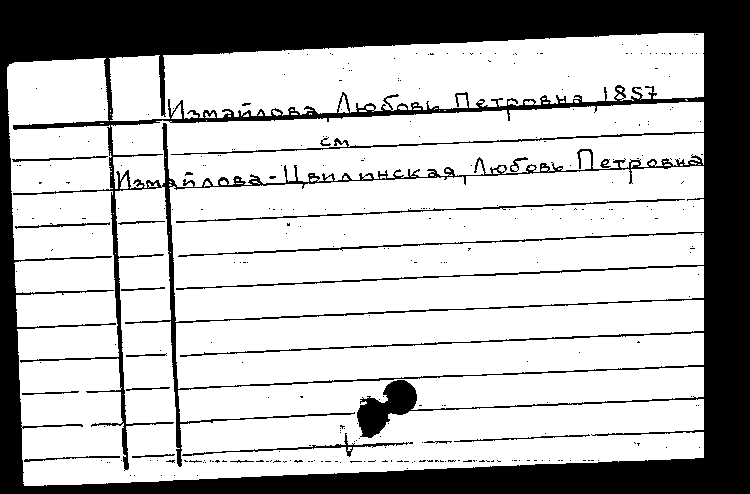 Измайлова, Любовь Петровна, 1857
см
Измайлова-Цвилинская, Любовь Петровна